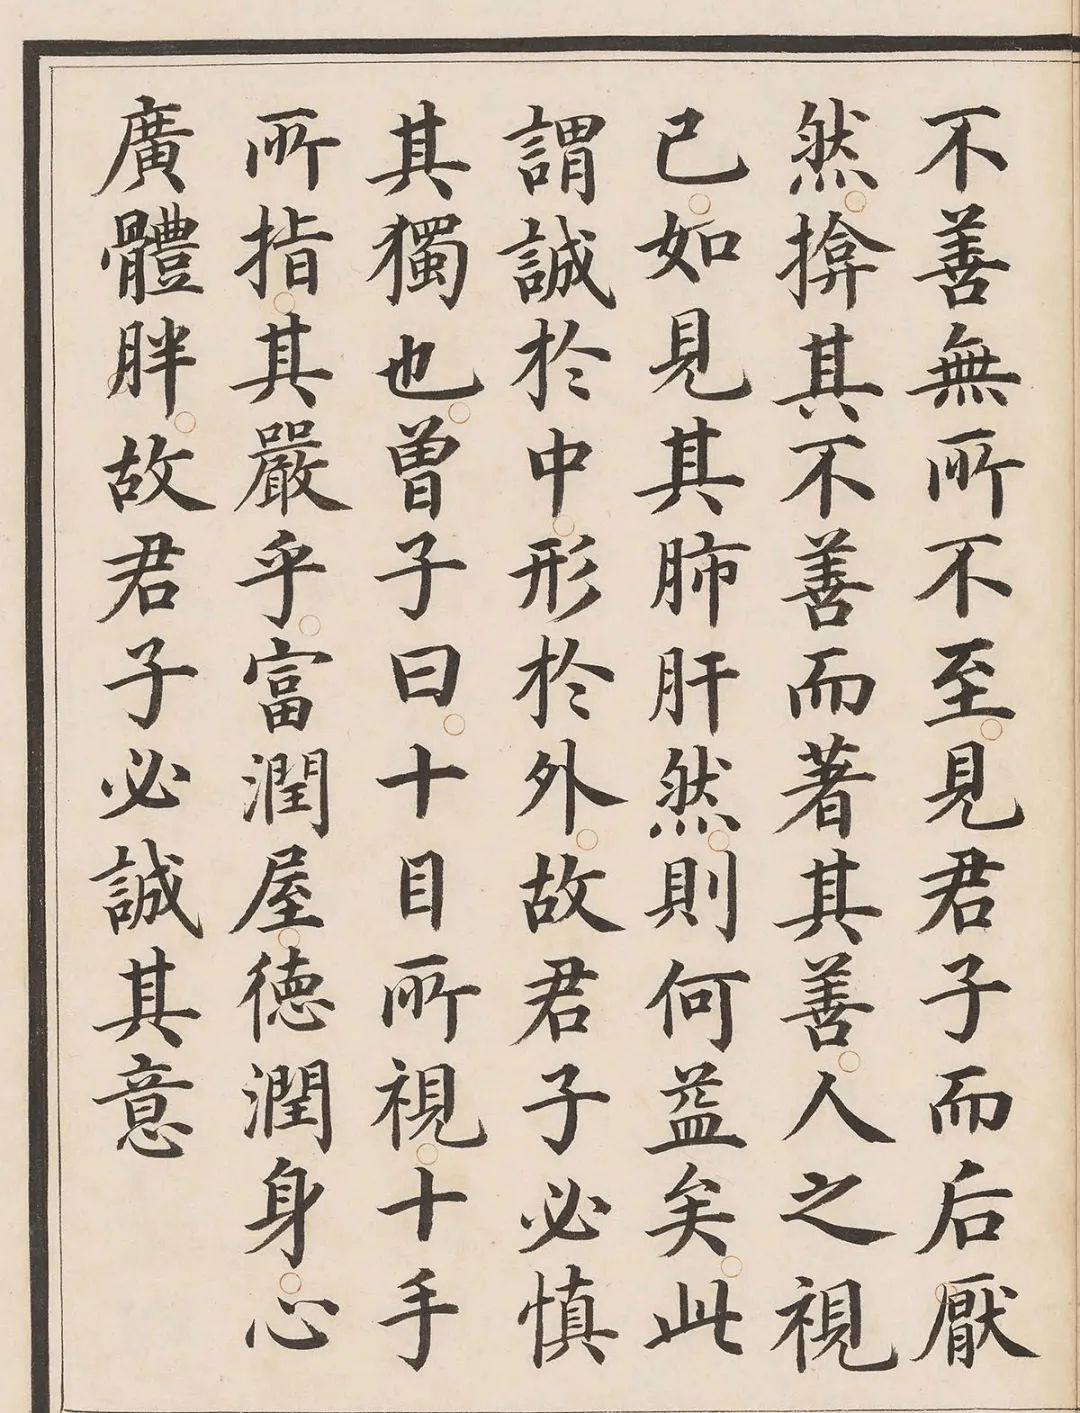 不善無所不至見君子而后厭
然揜其不善而著其善人之視
已如見其肺肝然則何益矣此
謂誠於中形於外故君子必慎
其獨也曾子曰十目所視十手
所指其嚴乎富潤屋德潤身心
廣體胖故君子必誠其意